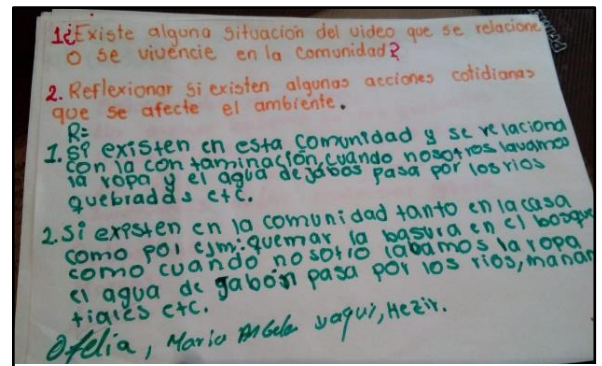 1¿Existe alguna situación del video que se relacione
o se vivencie en la comunidad?
2. Reflexionar si existen algunas acciones cotidianas
que se afecte el ambiente.
R=
1. Si existen en esta comunidad y se relaciona
con la contaminación, cuando nosotros lavamos
la ropa y el agua de jabos pasa por los rios
quebradas etc.
2. Si existen en la comunidad tanto en la casa
como por ejm: quemar la basura en el bosque
como cuando nosotro labamos la ropa
el agua de jabón pasa por los rios, manan
tiales etc.
Ofelia, Maria Angela yaqui, Hezir.